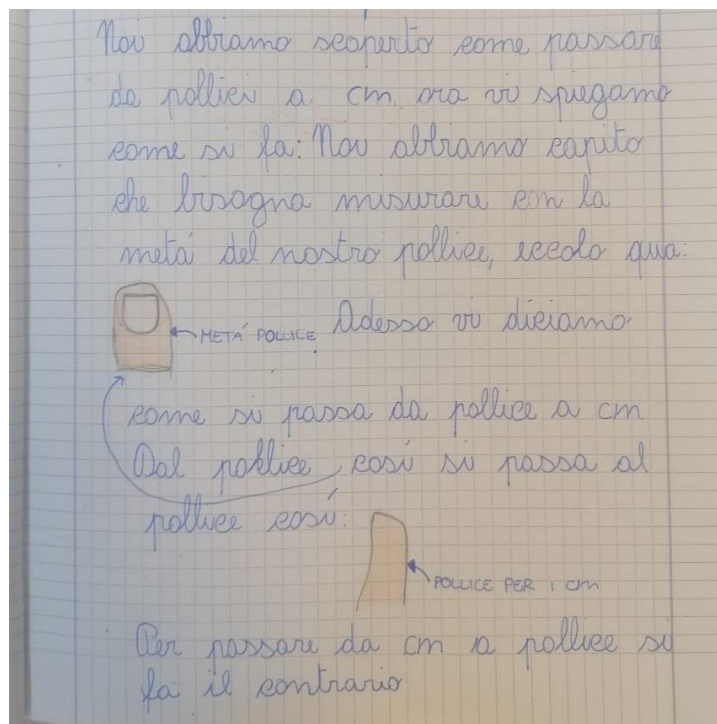 Noi abbiamo scoperto come passare
da pollici a cm ora vi spiegamo
come si fa: Noi abbiamo capito
che bisogna misurare con la
metá del nostro pollice, eccolo qua:
METÁ POLLICE Adesso vi diciamo
come si passa da pollice a cm.
Dal pollice così si passa al
pollice così:
POLLICE PER 1 cm
Per passare da cm a pollice si
fa il contrario